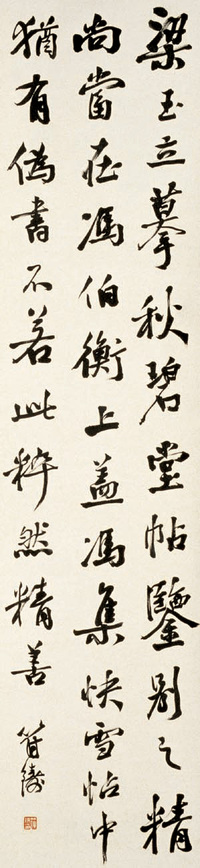 梁玉立摹秋碧堂帖鑒别之精
尚當在馮伯衡上蓋馮集快雪帖中
猶有偽書不若此粹然精善